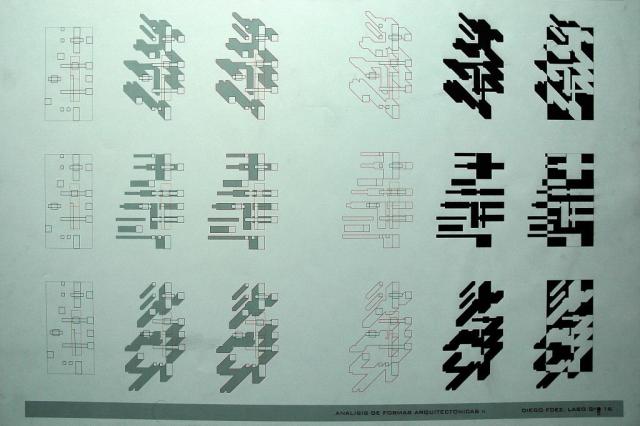 ANALISIS DE FORMAS ARQUITECTONICAS II
DIEGO FDEZ. LASO